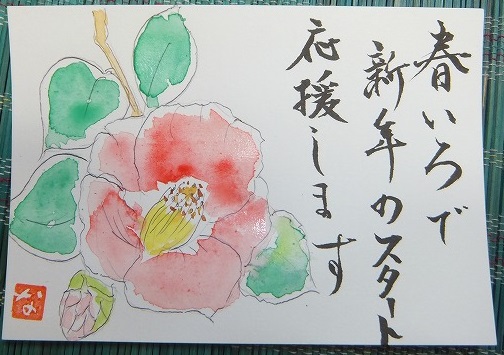 春いろで
新年のスタート
応援します
な